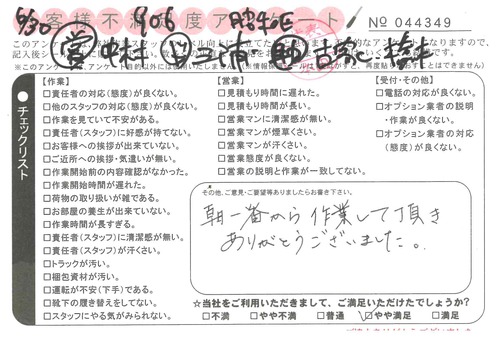 お客様不満足度アンケート
No 044349
6/30
906
営 中村
※このアンケート
チェックリスト
【作業】
□責任者の対応(態度)が良くない。
□他のスタッフの対応(態度)が良くない。
□作業を見ていて不安がある。
□責任者(スタッフ)に好感が持てない。
□お客様への挨拶が出来ていない。
□ご近所への挨拶・気遣いが無い。
□作業開始前の内容確認がなかった。
□作業開始時間が遅れた。
□荷物の取り扱いが雑である。
□お部屋の養生が出来ていない。
□作業時間が長すぎる。
□責任者(スタッフ)に清潔感が無い。
□責任者(スタッフ)が汗くさい。
□トラックが汚い。
□梱包資材が汚い。
□運転が不安(下手)である。
□靴下の履き替えをしてない。
□スタッフにやる気がみられない。
【営業】
□見積もり時間に遅れた。
□見積もり時間が長い。
□営業マンに清潔感が無い。
□営業マンが煙草くさい。
□営業マンが汗くさい。
□営業態度が良くない。
□営業の説明と作業が一致してない。
【受付・その他】
□電話の対応が良くない。
□オプション業者の説明
・作業が良くない。
□オプション業者の対応
(態度)が良くない。
その他、ご意見・ご要望等ありましたらお書き下さい。
朝一番から作業して頂き
ありがとうございました。
☆当社をご利用いただきまして、ご満足いただけたでしょうか?
□不満 □やや不満 □普通 ☑やや満足 □満足